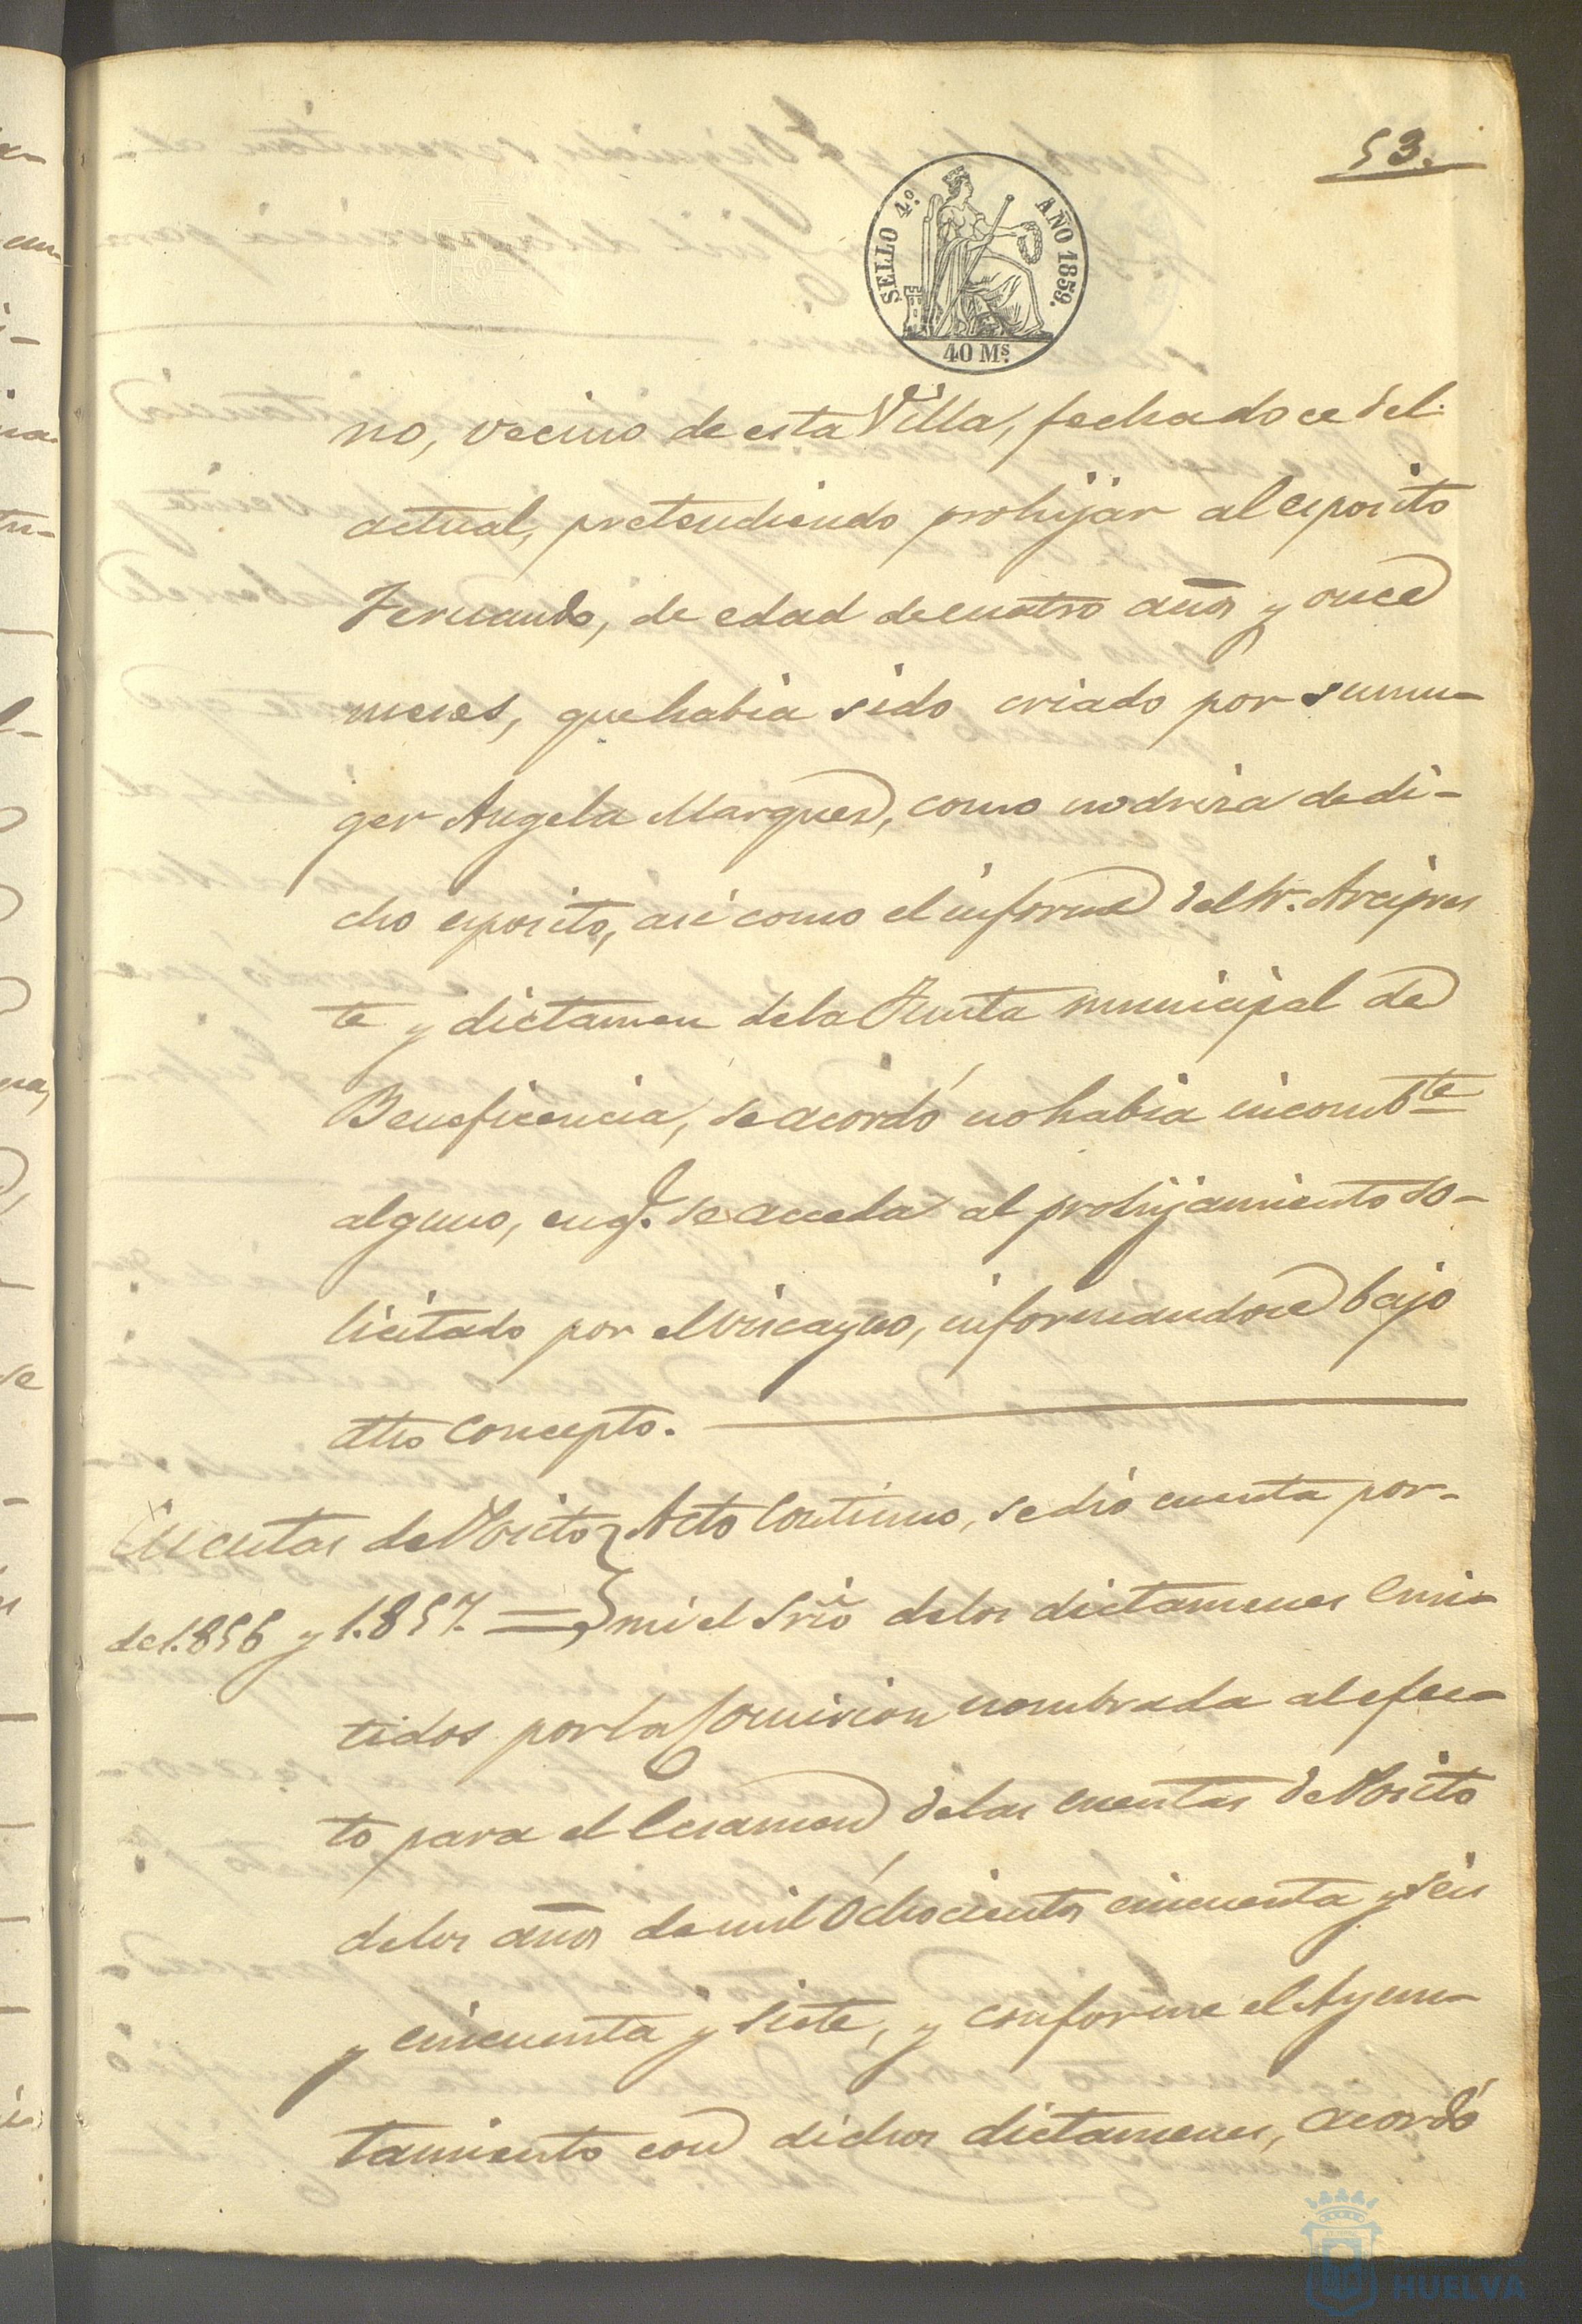 53.
SELLO 4º. AÑO 1859.
40 Ms.
no, vecino de esta Villa, fecha doce del
actual, pretendiendo prohijar al esposito
Fernando, de edad de cuatro años y once
meses, que habia sido criado por su mu-
ger Angela Marquez, como nodriza de di-
cho esposito, asi como el informe del Sr. Arcipres
te y dictamen de la Junta municipal de
Beneficencia, se acordó no habia incombte
alguno, en q. se acceda al prohijamiento so-
licitado por el Viscayno, informandose bajo
dho concepto.
Cuentas del Posito } Acto Continuo, se dió cuenta por-
de 1.856 y 1.857. = } mi el Srio de los dictamenes emi-
tidos por la Comision nombrada al efec-
to para el Ecsamen de las cuentas del Posito
de los años de mil ochocientos cincuenta y seis
y cincuenta y siete, y conforme el Ayun-
tamiento con dichos dictamenes, acordó
HUELVA